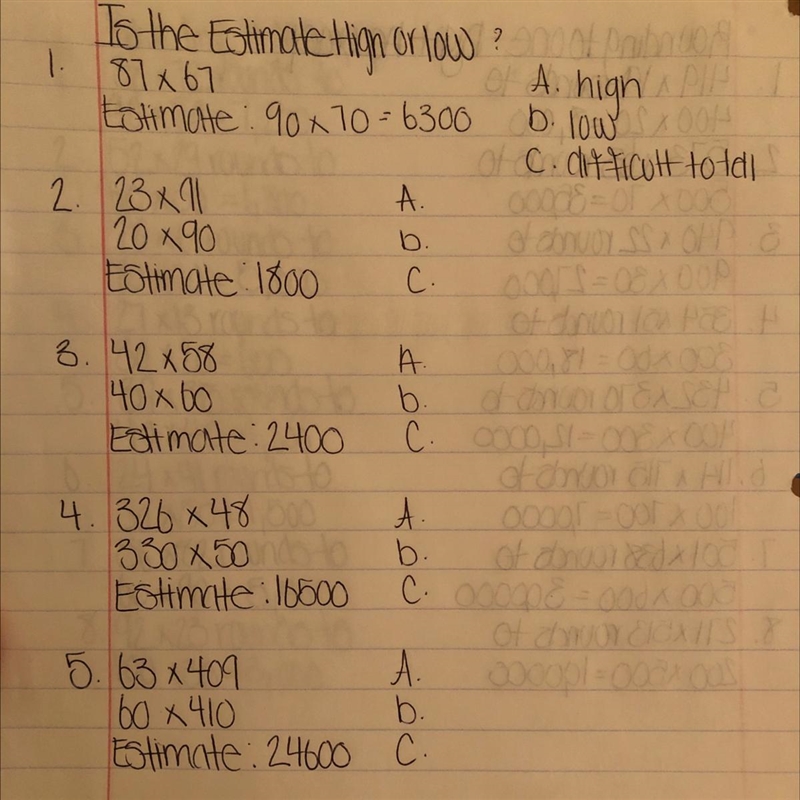 Is the Estimate High or low ?
1. 87 x 67 A. high
Estimate : 90 x 70 = 6300 b. low
C. difficult to tell
2. 23 x 91 A.
20 x 90 b.
Estimate : 1800 C.
3. 42 x 58 A.
40 x 60 b.
Estimate : 2400 C.
4. 326 x 48 A.
330 x 50 b.
Estimate : 16500 C.
5. 63 x 409 A.
60 x 410 b.
Estimate : 24600 C.